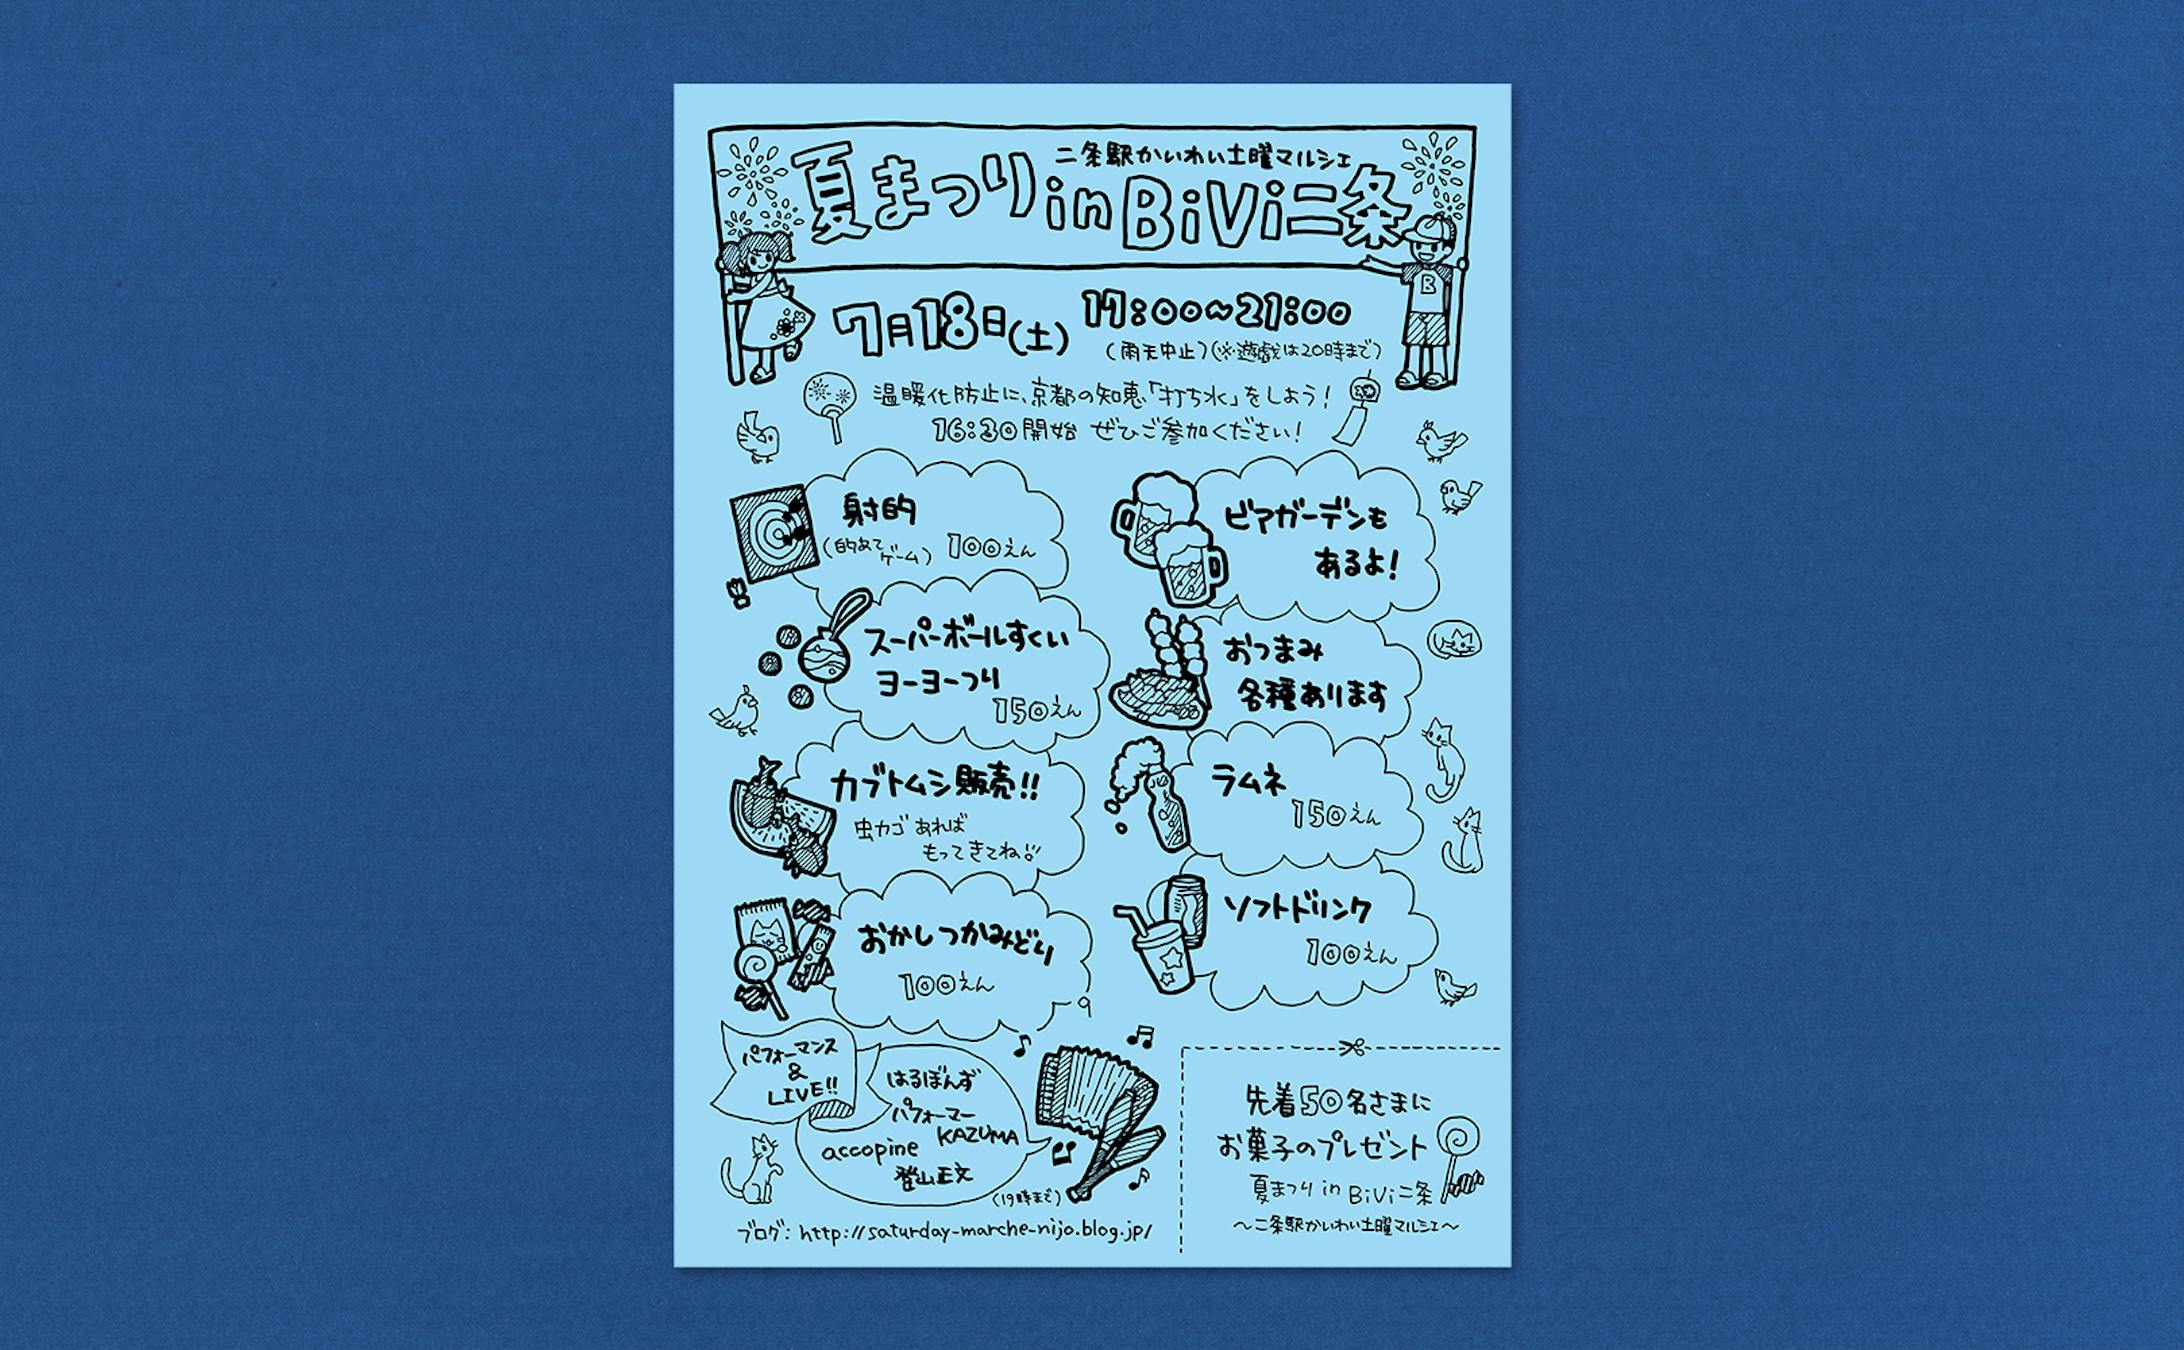 二条駅かいわい土曜マルシェ
夏まつり in BiVi二条
7月18日(土) 17:00~21:00
(雨天中止)(※遊戯は20時まで)
温暖化防止に、京都の知恵「打ち水」をしよう!
16:30開始 ぜひご参加ください!
射的
(的あてゲーム) 100えん
スーパーボールすくい
ヨーヨーつり
150えん
カブトムシ販売!!
虫カゴあれば
もってきてね!!
おかしつかみどり
100えん
ビアガーデンも
あるよ!
おつまみ
各種あります
ラムネ
150えん
ソフトドリンク
100えん
パフォーマンス
&
LIVE!!
はるぼんず
パフォーマー
KAZUMA
accopine
登山正文
(19時まで)
ブログ: http://saturday-marche-nijo.blog.jp/
先着50名さまに
お菓子のプレゼント
夏まつり in BiVi二条
~二条駅かいわい土曜マルシェ~
B